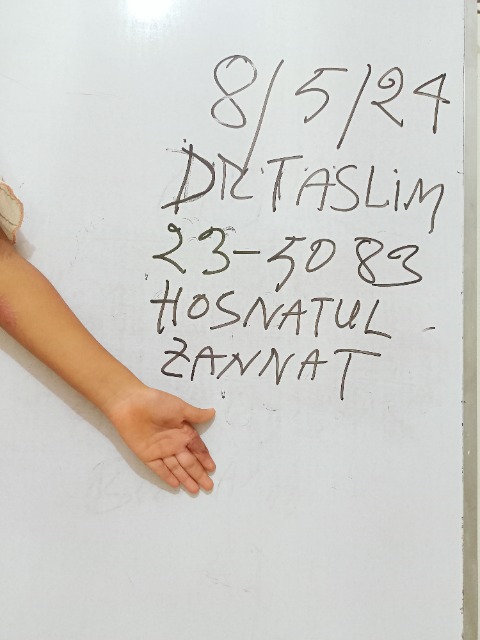 8/5/24
DR.TASLIM
23-5083
HOSNATUL
ZANNAT